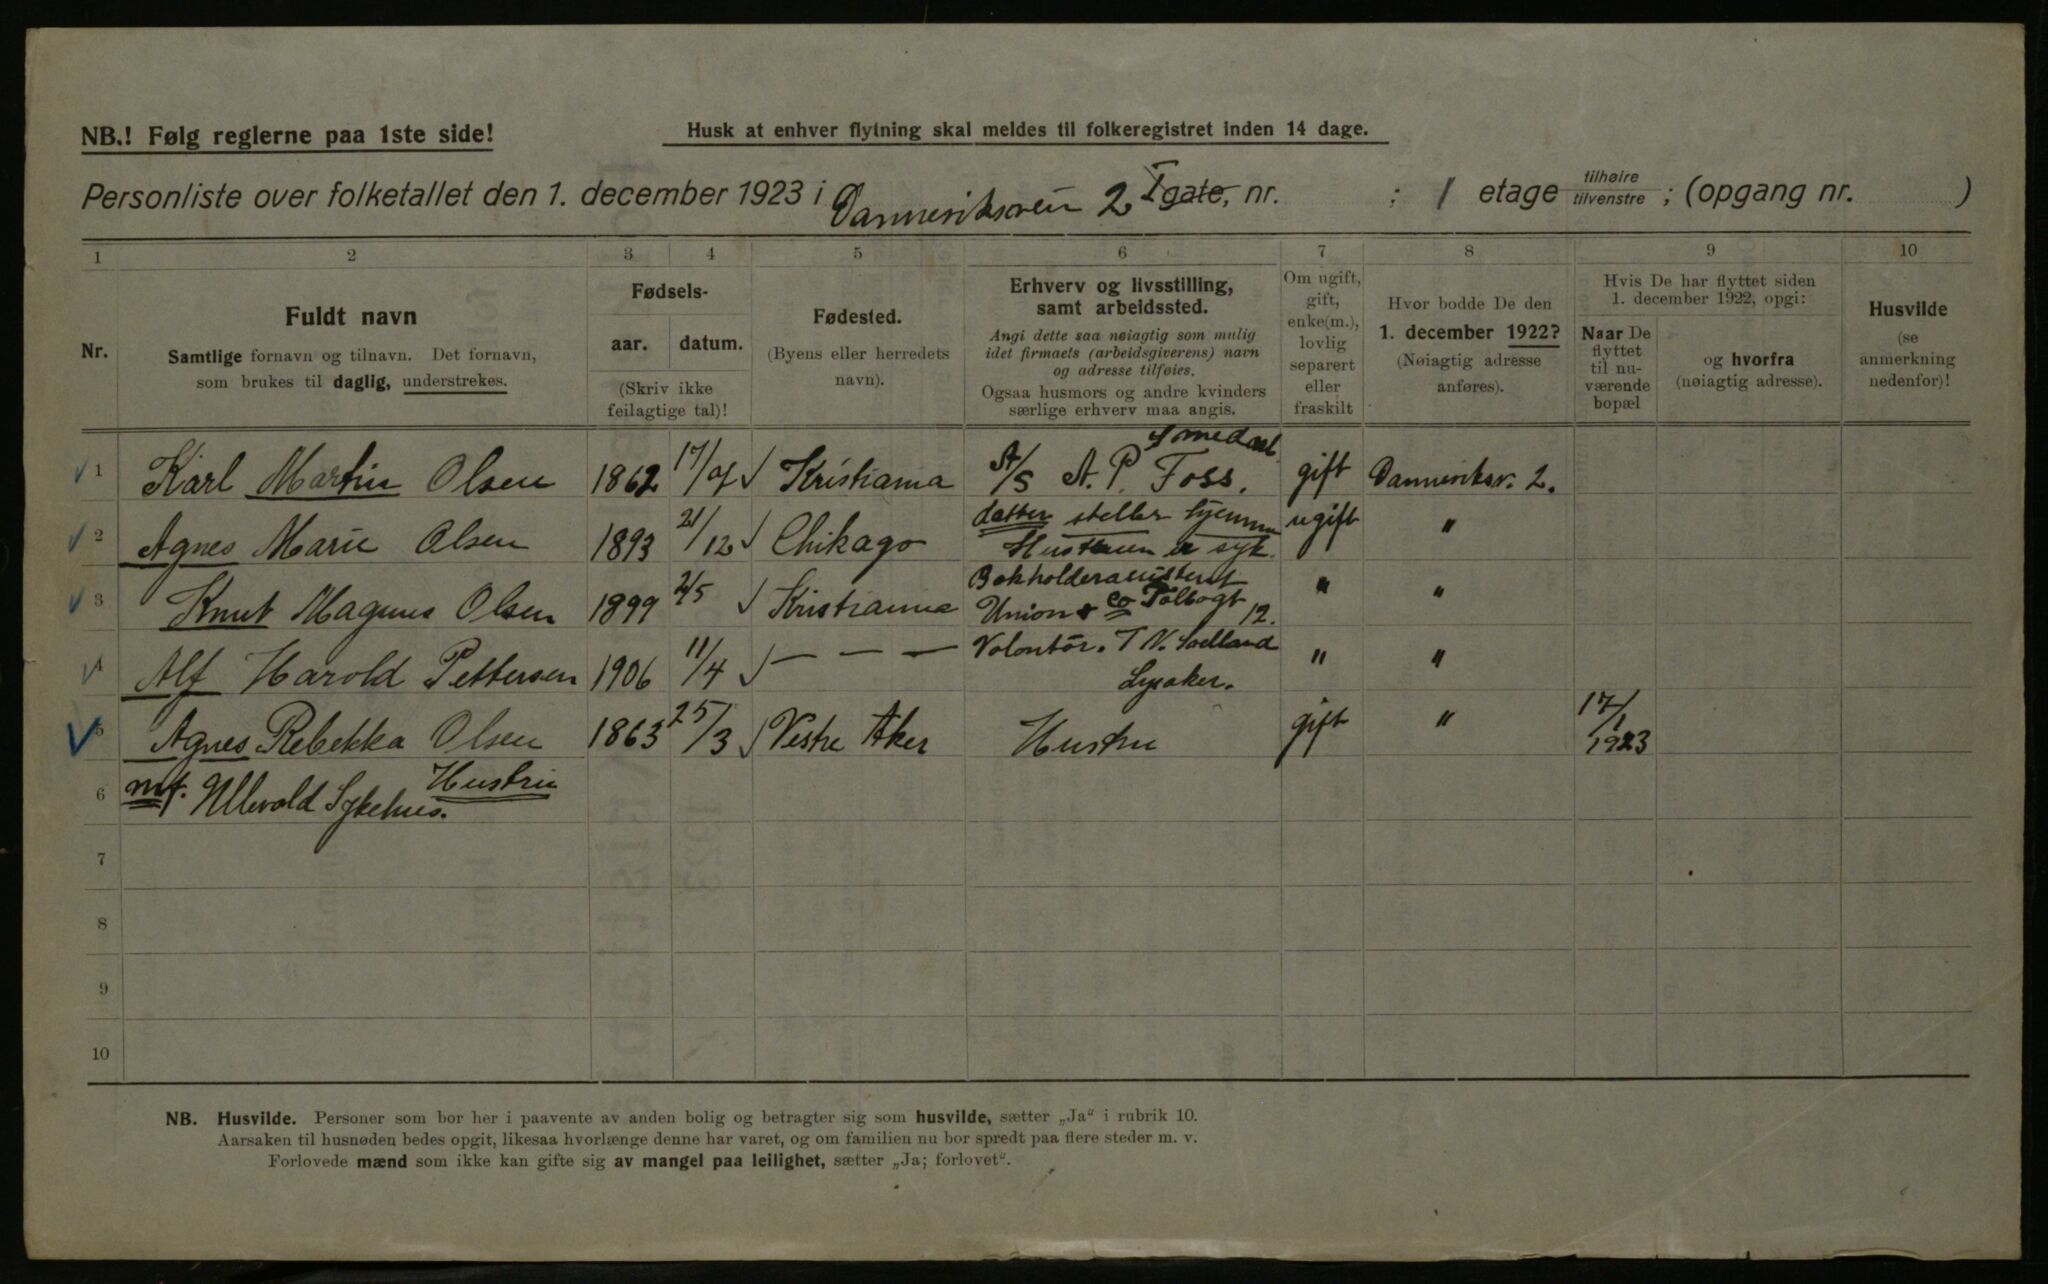 NB.! Følg reglerne paa 1ste side!
Husk at enhver flytning skal meldes til folkeregistret inden 14 dage.
Personliste over folketallet den 1. december 1923 i Danneriksvein 2 I gate, nr. ; 1 etage tilhøire tilvenstre ; (opgang nr. )
1 2 3 4 5 6 7 8 9 10
Nr.
Fuldt navn
Samtlige fornavn og tilnavn. Det fornavn,
som brukes til daglig, understrekes.
Fødsels-
aar. datum.
(Skriv ikke
feilagtige tal)!
Fødested.
(Byens eller herredets
navn).
Erhverv og livsstilling,
samt arbeidssted.
Angi dette saa nøiagtig som mulig
idet firmaets (arbeidsgiverens) navn
og adresse tilføies.
Ogsaa husmors og andre kvinders
særlige erhverv maa angis.
Om ugift,
gift,
enke(m.),
lovlig
separert
eller
fraskilt
Hvor bodde De den
1. december 1922?
(Nøiagtig adresse
anføres).
Hvis De har flyttet siden
1. december 1922, opgi:
Naar De
flyttet
til nu-
værende
bopæl
og hvorfra
(nøiagtig adresse).
Husvilde
(se
anmerkning
nedenfor)!
1 Karl Martin Olsen 1862 17/9 Kristiania A/S A. P. Foss. gift Danneriksv. 2.
2 Agnes Marie Olsen 1893 21/12 Chikago datter steller hjemme ugift "
Hustruen er syk.
3 Knut Magnus Olsen 1899 2/5 Kristiania Bokholderassistent " "
Union & Co Tolbogt 12.
4 Alf Harold Pettersen 1906 11/4 — — — Volontør. T. N. " "
Lysaker.
5 Agnes Rebekka Olsen 1863 25/3 Vestre Aker Hustru gift " 17/1 1923
6 mf. Ullevold Sykehus. Hustru
7
8
9
10
NB. Husvilde. Personer som bor her i paavente av anden bolig og betragter sig som husvilde, sætter „Ja“ i rubrik 10.
Aarsaken til husnøden bedes opgit, likesaa hvorlænge denne har varet, og om familien nu bor spredt paa flere steder m. v.
Forlovede mænd som ikke kan gifte sig av mangel paa leilighet, sætter „Ja; forlovet“.